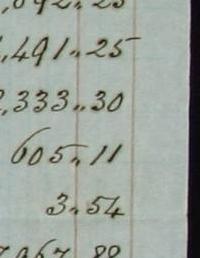 ,491 „ 25
,333 „ 30
605 „ 11
3 „ 54